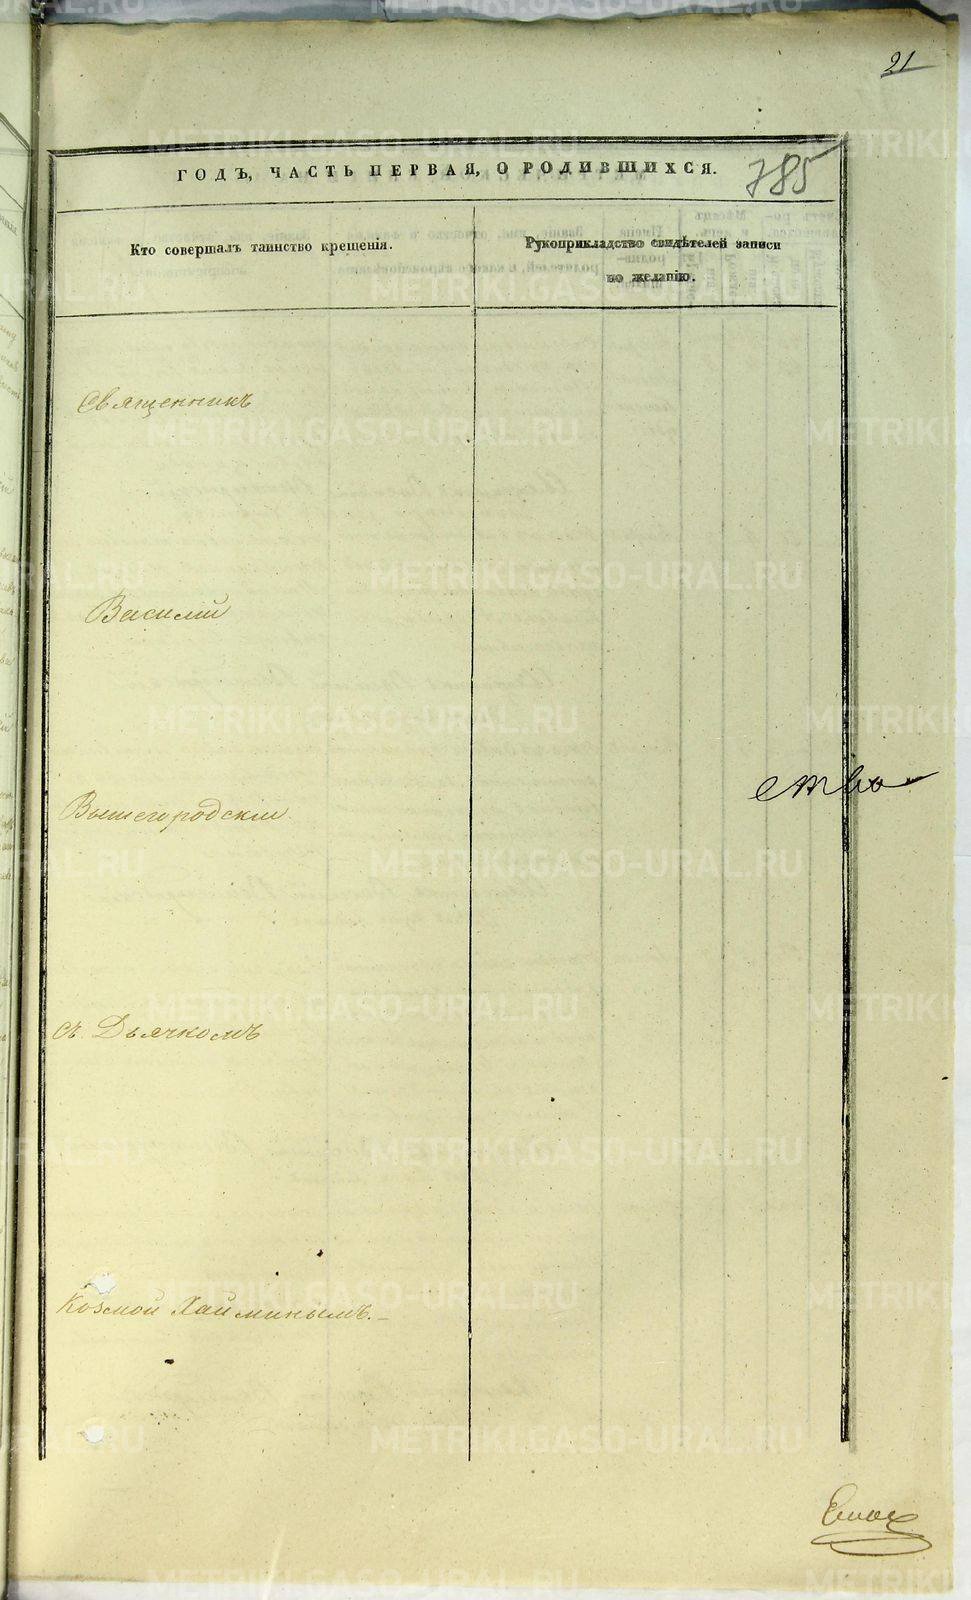 21
ГОДЪ, ЧАСТЬ ПЕРВАЯ, О РОДИВШИХСЯ.
785
Кто совершалъ таинство крещенія.
Рукоприкладство свидѣтелей записи
по желанію.
Священникъ
Василій
ство
Вышегородскій
съ Дьячкомъ
Козмой Хайминымъ.
METRIKI.GASO-URAL.RU